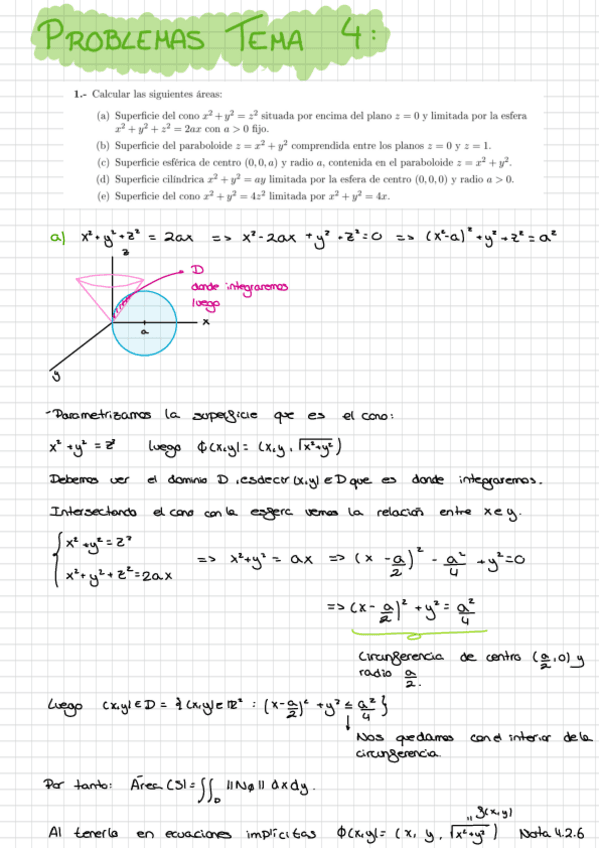 PROBLEMAS TEMA 4:
1.- Calcular las siguientes áreas:
(a) Superficie del cono x² + y² = z² situada por encima del plano z = 0 y limitada por la esfera
x² + y² + z² = 2ax con a > 0 fijo.
(b) Superficie del paraboloide z = x² + y² comprendida entre los planos z = 0 y z = 1.
(c) Superficie esférica de centro (0, 0, a) y radio a, contenida en el paraboloide z = x² + y².
(d) Superficie cilíndrica x² + y² = ay limitada por la esfera de centro (0, 0, 0) y radio a > 0.
(e) Superficie del cono x² + y² = 4z² limitada por x² + y² = 4x.
a) x² + y² + z² = 2ax => x² - 2ax + y² + z² = 0 => (x² - a)² + y² + z² = a²
z
D
donde integraremos
luego
x
a
y
- Parametrizamos la superficie que es el cono:
x² + y² = z² luego φ(x,y) = (x, y, √(x²+y²))
Debemos ver el dominio D, es decir (x,y) ∈ D que es donde integraremos.
Intersectando el cono con la esfera vemos la relación entre x e y.
{ x² + y² = z²
x² + y² + z² = 2ax => x² + y² = ax => (x - a/2)² - a²/4 + y² = 0
=> (x - a/2)² + y² = a²/4
Circunferencia de centro (a/2, 0) y
radio a/2.
Luego (x,y) ∈ D = { (x,y) ∈ ℝ² : (x - a/2)² + y² ≤ a²/4 }
Nos quedamos con el interior de la
circunferencia.
Por tanto: Área (S) = ∬_D ||Nφ|| dxdy.
g(x,y)
Al tenerla en ecuaciones implícitas φ(x,y) = (x, y, √(x²+y²)) Nota 4.2.6